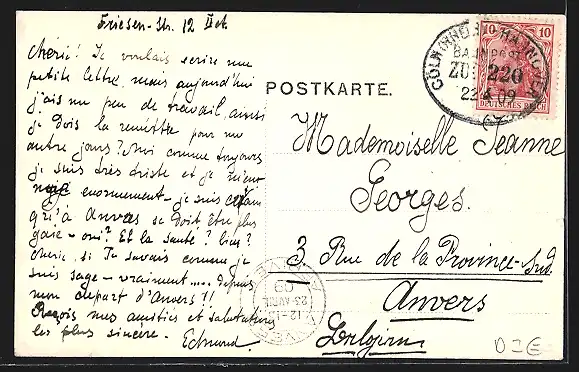 Friesen-Str. 12 II et.
Chérie! Je voulais écrire une
petite lettre mais aujourd'hui
j'ais un peu de travail, ainsi
je dois la remettre pour un
autre jours? Moi comme toujours
je suis très triste et je
enormement - je suis
qu'à Anvers se doit être plus
gaie - oui? Et la santé? bien?
Cherie, si Tu savais comme je
suis sage - vraiment..... depuis
mon départ d'Anvers!!
Reçois mes amitiés et salutations
les plus sincère. Edmund.
POSTKARTE.
Mademoiselle Jeanne
Georges.
3, Rue de la Province-Sud.
Anvers
Belgien
10 10
DEUTSCHES REICH
CÖLN HANNOVER
BAHNPOST
ZUG 220
22 4 09
ANVERS
12-13
23 AVRIL
09